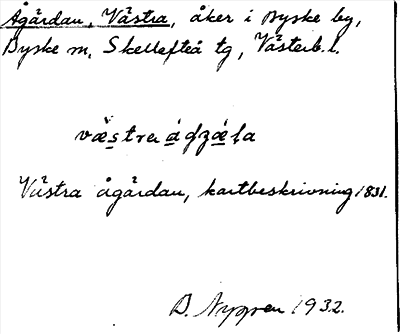 Ågärdan, Västra, åker i Byske by,
Byske sn, Skellefteå tg, Västerb. l.
västra
Västra ågärdan, kartbeskrivning 1831.
B. Nygren 1932.